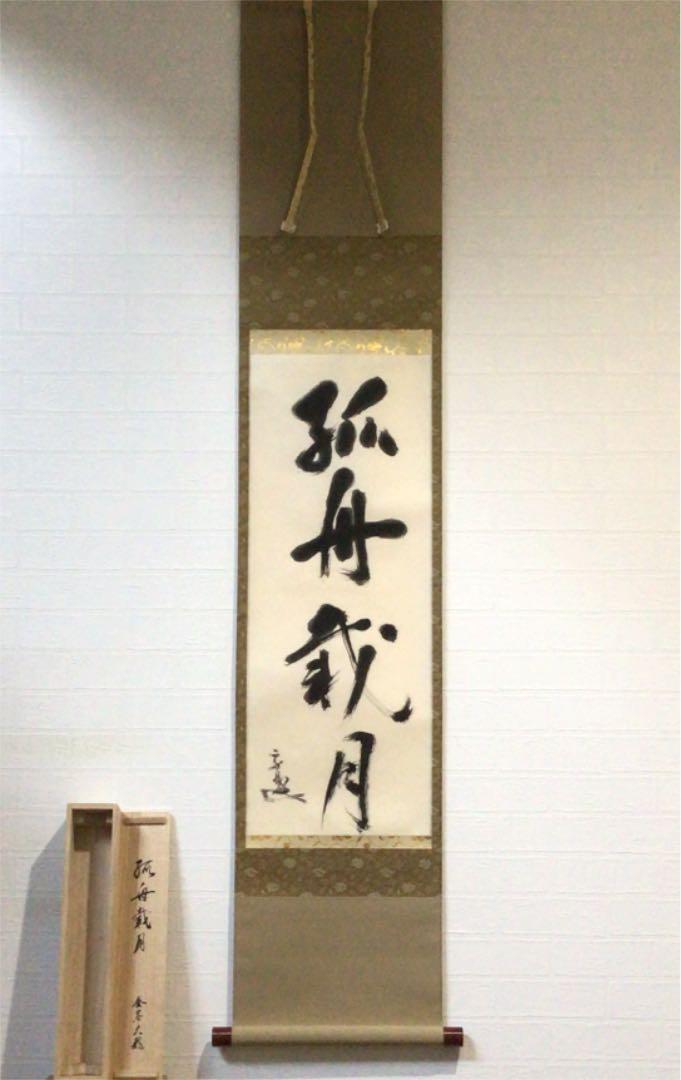 孤舟載月
孤舟載月